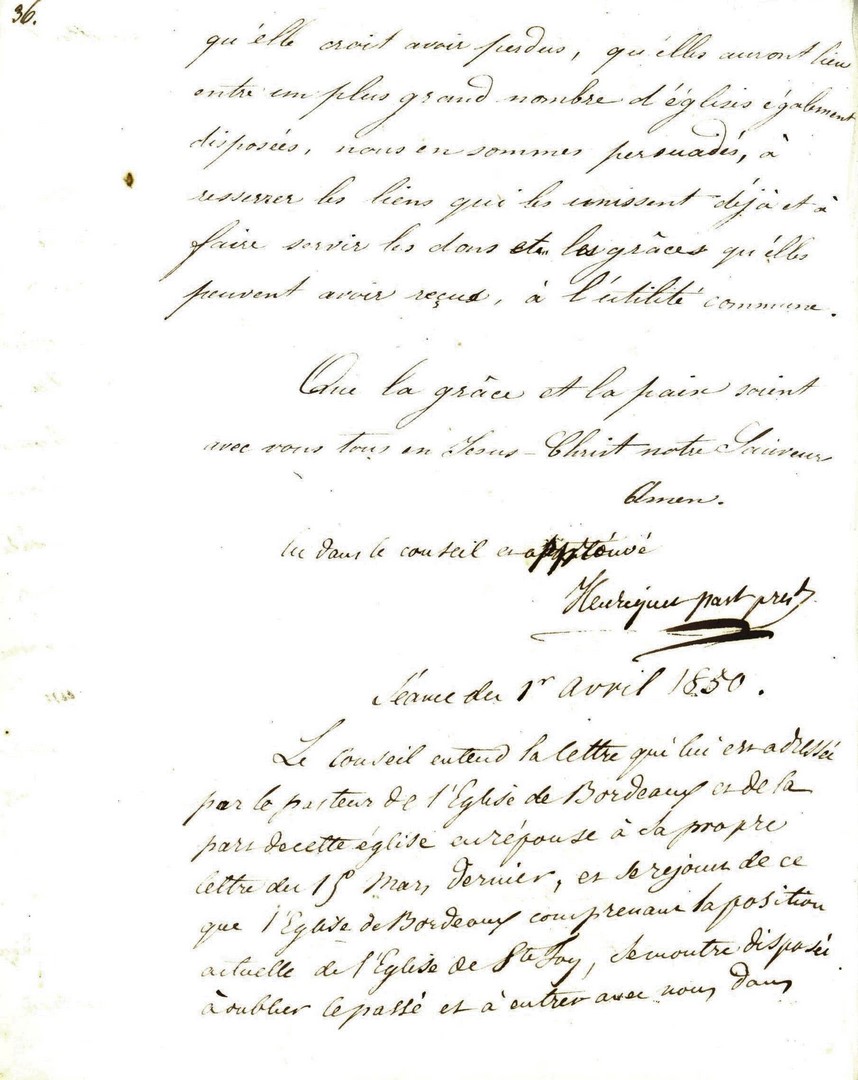 36.
qu'elle croit avoir perdus, qu'elles auront lieu
entre un plus grand nombre d'églises également
disposées, nous en sommes persuadés, à
resserrer les liens qui les unissent déjà et à
faire servir les dons et les grâces qu'elles
peuvent avoir reçus, à l'utilité commune.
Que la grâce et la paix soient
avec vous tous en Jésus-Christ notre Sauveur
Amen.
lu dans le conseil et approuvé
Henriquet past prest
Séance du 1r Avril 1850.
Le conseil entend la lettre qui lui est adressée
par le pasteur de l'Eglise de Bordeaux et de la
part de cette église en réponse à sa propre
lettre du 15 Mars dernier, et se rejouit de ce
que l'Eglise de Bordeaux comprenant la position
actuelle de l'Eglise de Ste Foy, se montre disposée
à oublier le passé et à entrer avec nous dans